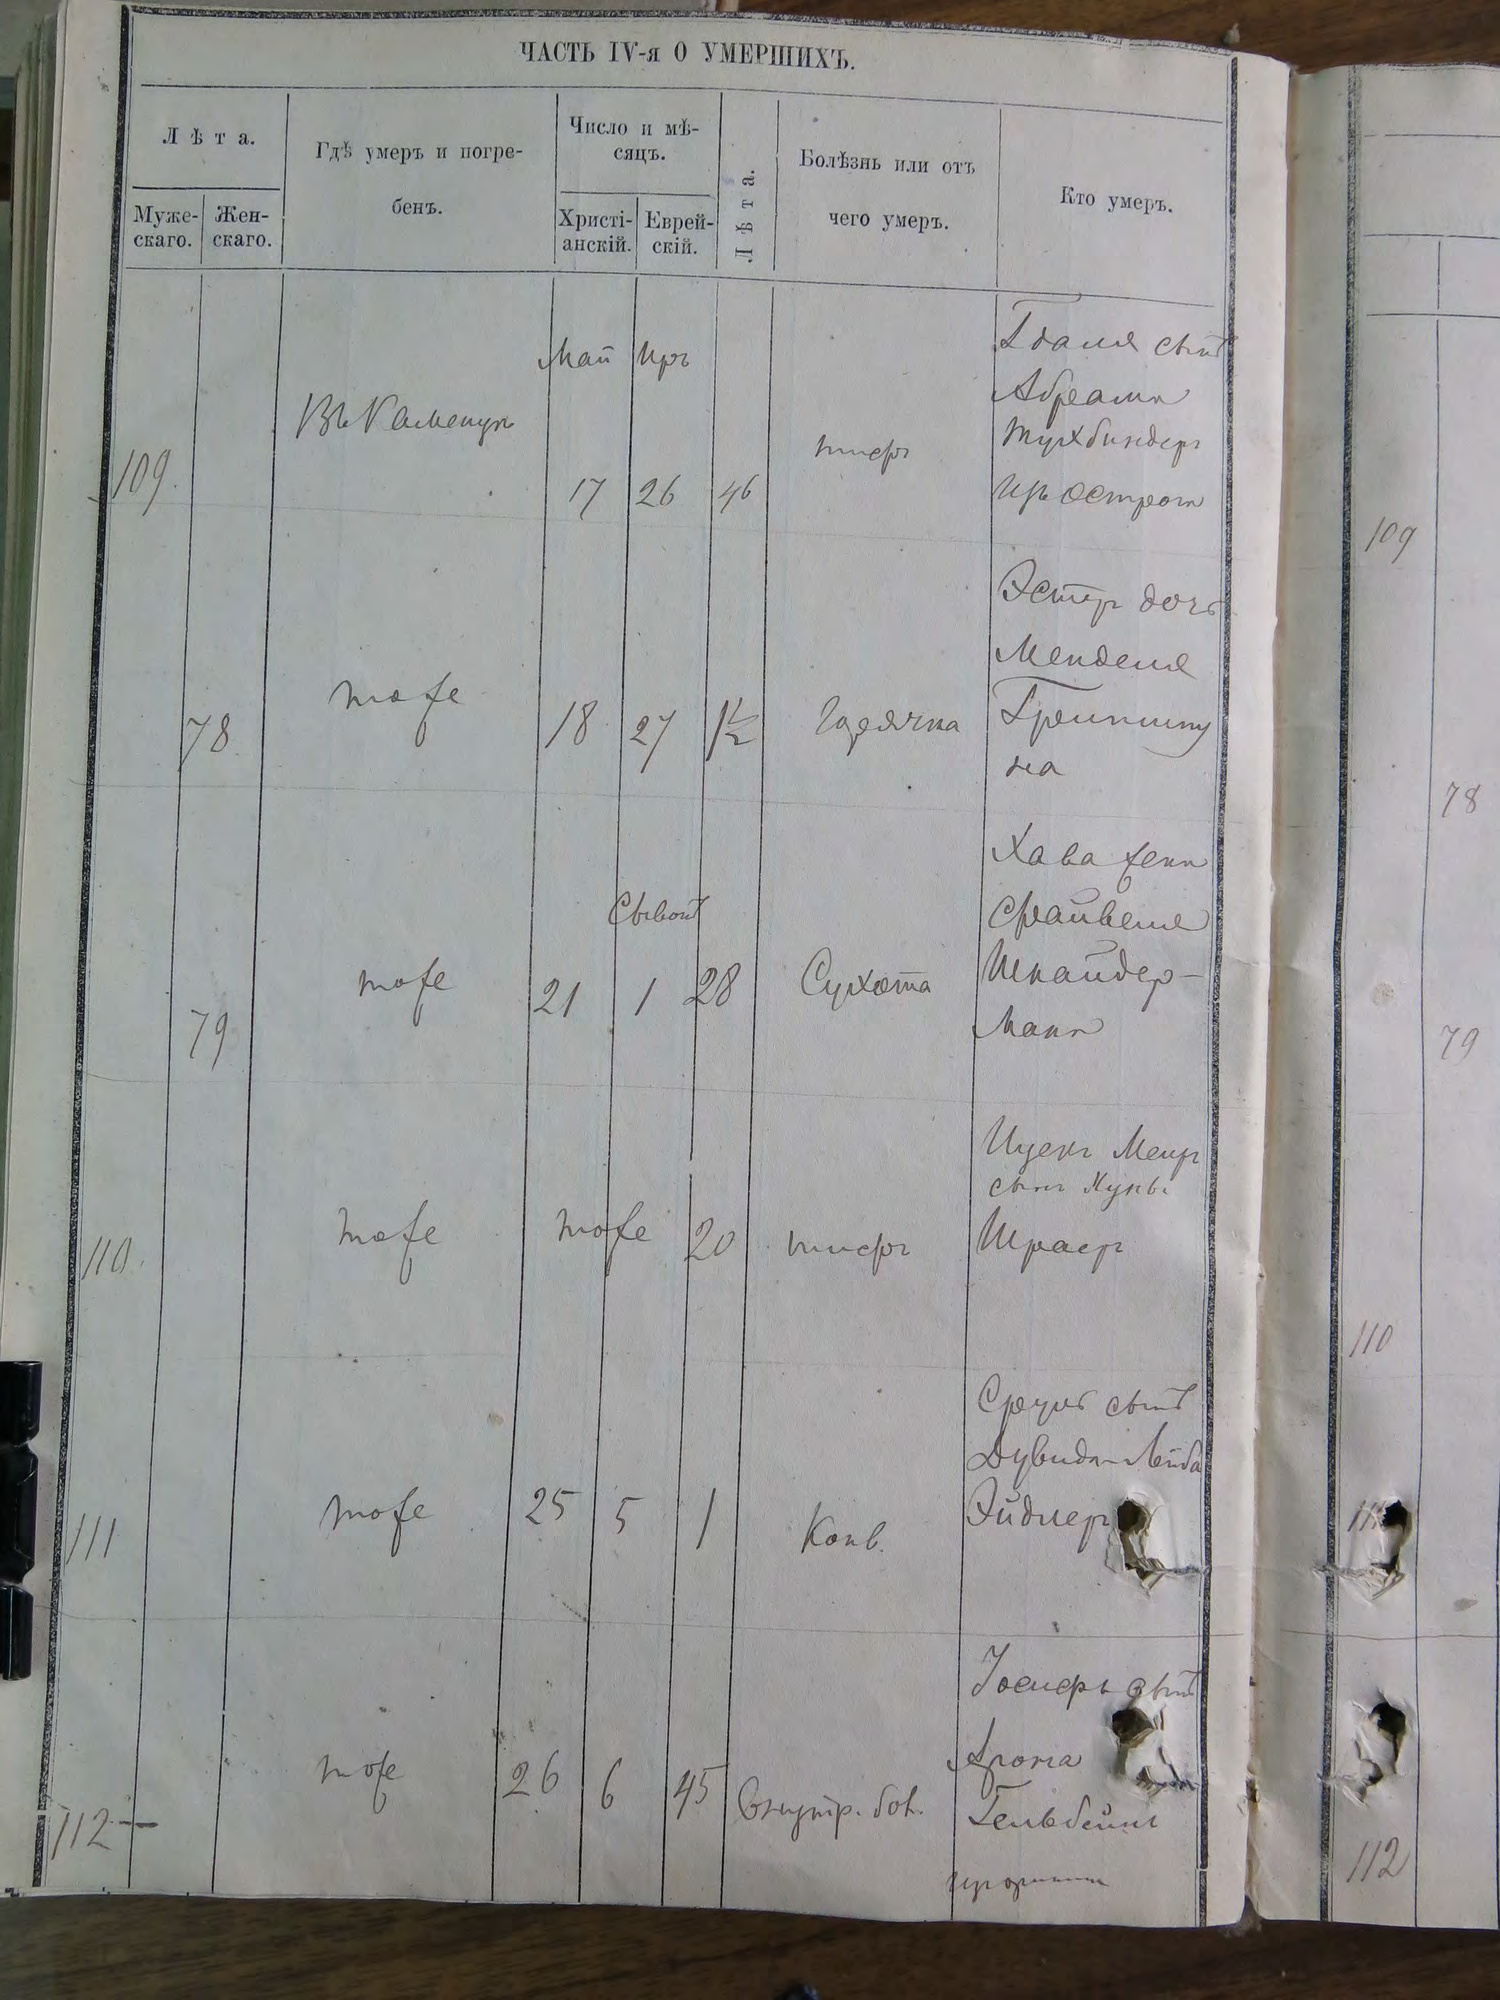 ЧАСТЬ IV-я О УМЕРШИХЪ.
Лѣта.
Муже-
скаго.
Жен-
скаго.
Гдѣ умеръ и погре-
бенъ.
Число и мѣ-
сяцъ.
Христі-
анскій.
Еврей-
скій.
Лѣта.
Болѣзнь или отъ
чего умеръ.
Кто умеръ.
109
Май
17
26
46
тифъ
Гдаля сынъ
Абрама
Тухбиндеръ
78
тоже
18
27
1½
Горячка
Эстер дочь
Менделя
на
79
тоже
21
Сывонъ
1
28
Сухота
Хава жена
Шнайдер-
Мана
110
тоже
тоже
20
тифъ
Ицекъ Меир
сынъ
111
тоже
25
5
1
Конв.
Сруль сынъ
Дувида-Лейба
Эйдлеръ
112
тоже
26
6
45
Внутр. бол.
Иосифъ сынъ
Арона
109
78
79
110
111
112